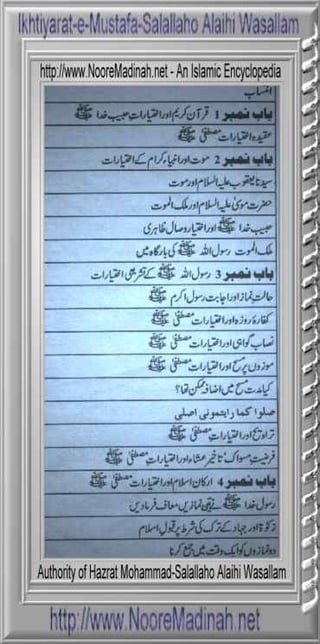 Ikhtiyarat-e-Mustafa-Salallaho Alaihi Wasallam
http://www.NooreMadinah.net - An Islamic Encyclopedia
انتساب
باب نمبر 1 قرآن کریم اور اختیارات حبیب خدا ﷺ
عقیدہ اختیارات مصطفیٰ ﷺ
باب نمبر 2 موت اور انبیاء کرام کے اختیارات
سیدنا یعقوب علیہ السلام اور موت
حضرت موسیٰ علیہ السلام اور ملک الموت
حبیب خدا ﷺ اور اختیار وصال ظاہری
ملک الموت رسول اللہ ﷺ کی بارگاہ میں
باب نمبر 3 رسول اللہ ﷺ کے تشریعی اختیارات
حالت نماز اور اجابت رسول اکرم ﷺ
کفارۂ روزہ اور اختیارات مصطفیٰ ﷺ
نصاب گواہی اور اختیارات مصطفیٰ ﷺ
موزوں پر مسح اور اختیارات مصطفیٰ ﷺ
کیا مدت مسح میں اضافہ ممکن تھا؟
صلوا کما رایتمونی اصلی
تراویح اور اختیارات مصطفیٰ ﷺ
فرضیت مسواک، تاخیر عشاء اور اختیارات مصطفیٰ ﷺ
باب نمبر 4 ارکان اسلام اور اختیارات مصطفیٰ ﷺ
رسول خدا ﷺ نے نمازیں معاف فرما دیں
زکوٰۃ اور جہاد کے ترک کی شرط پر قبول اسلام
دو نمازوں کو ایک وقت میں جمع کرنا
Authority of Hazrat Mohammad-Salallaho Alaihi Wasallam
http://www.NooreMadinah.net